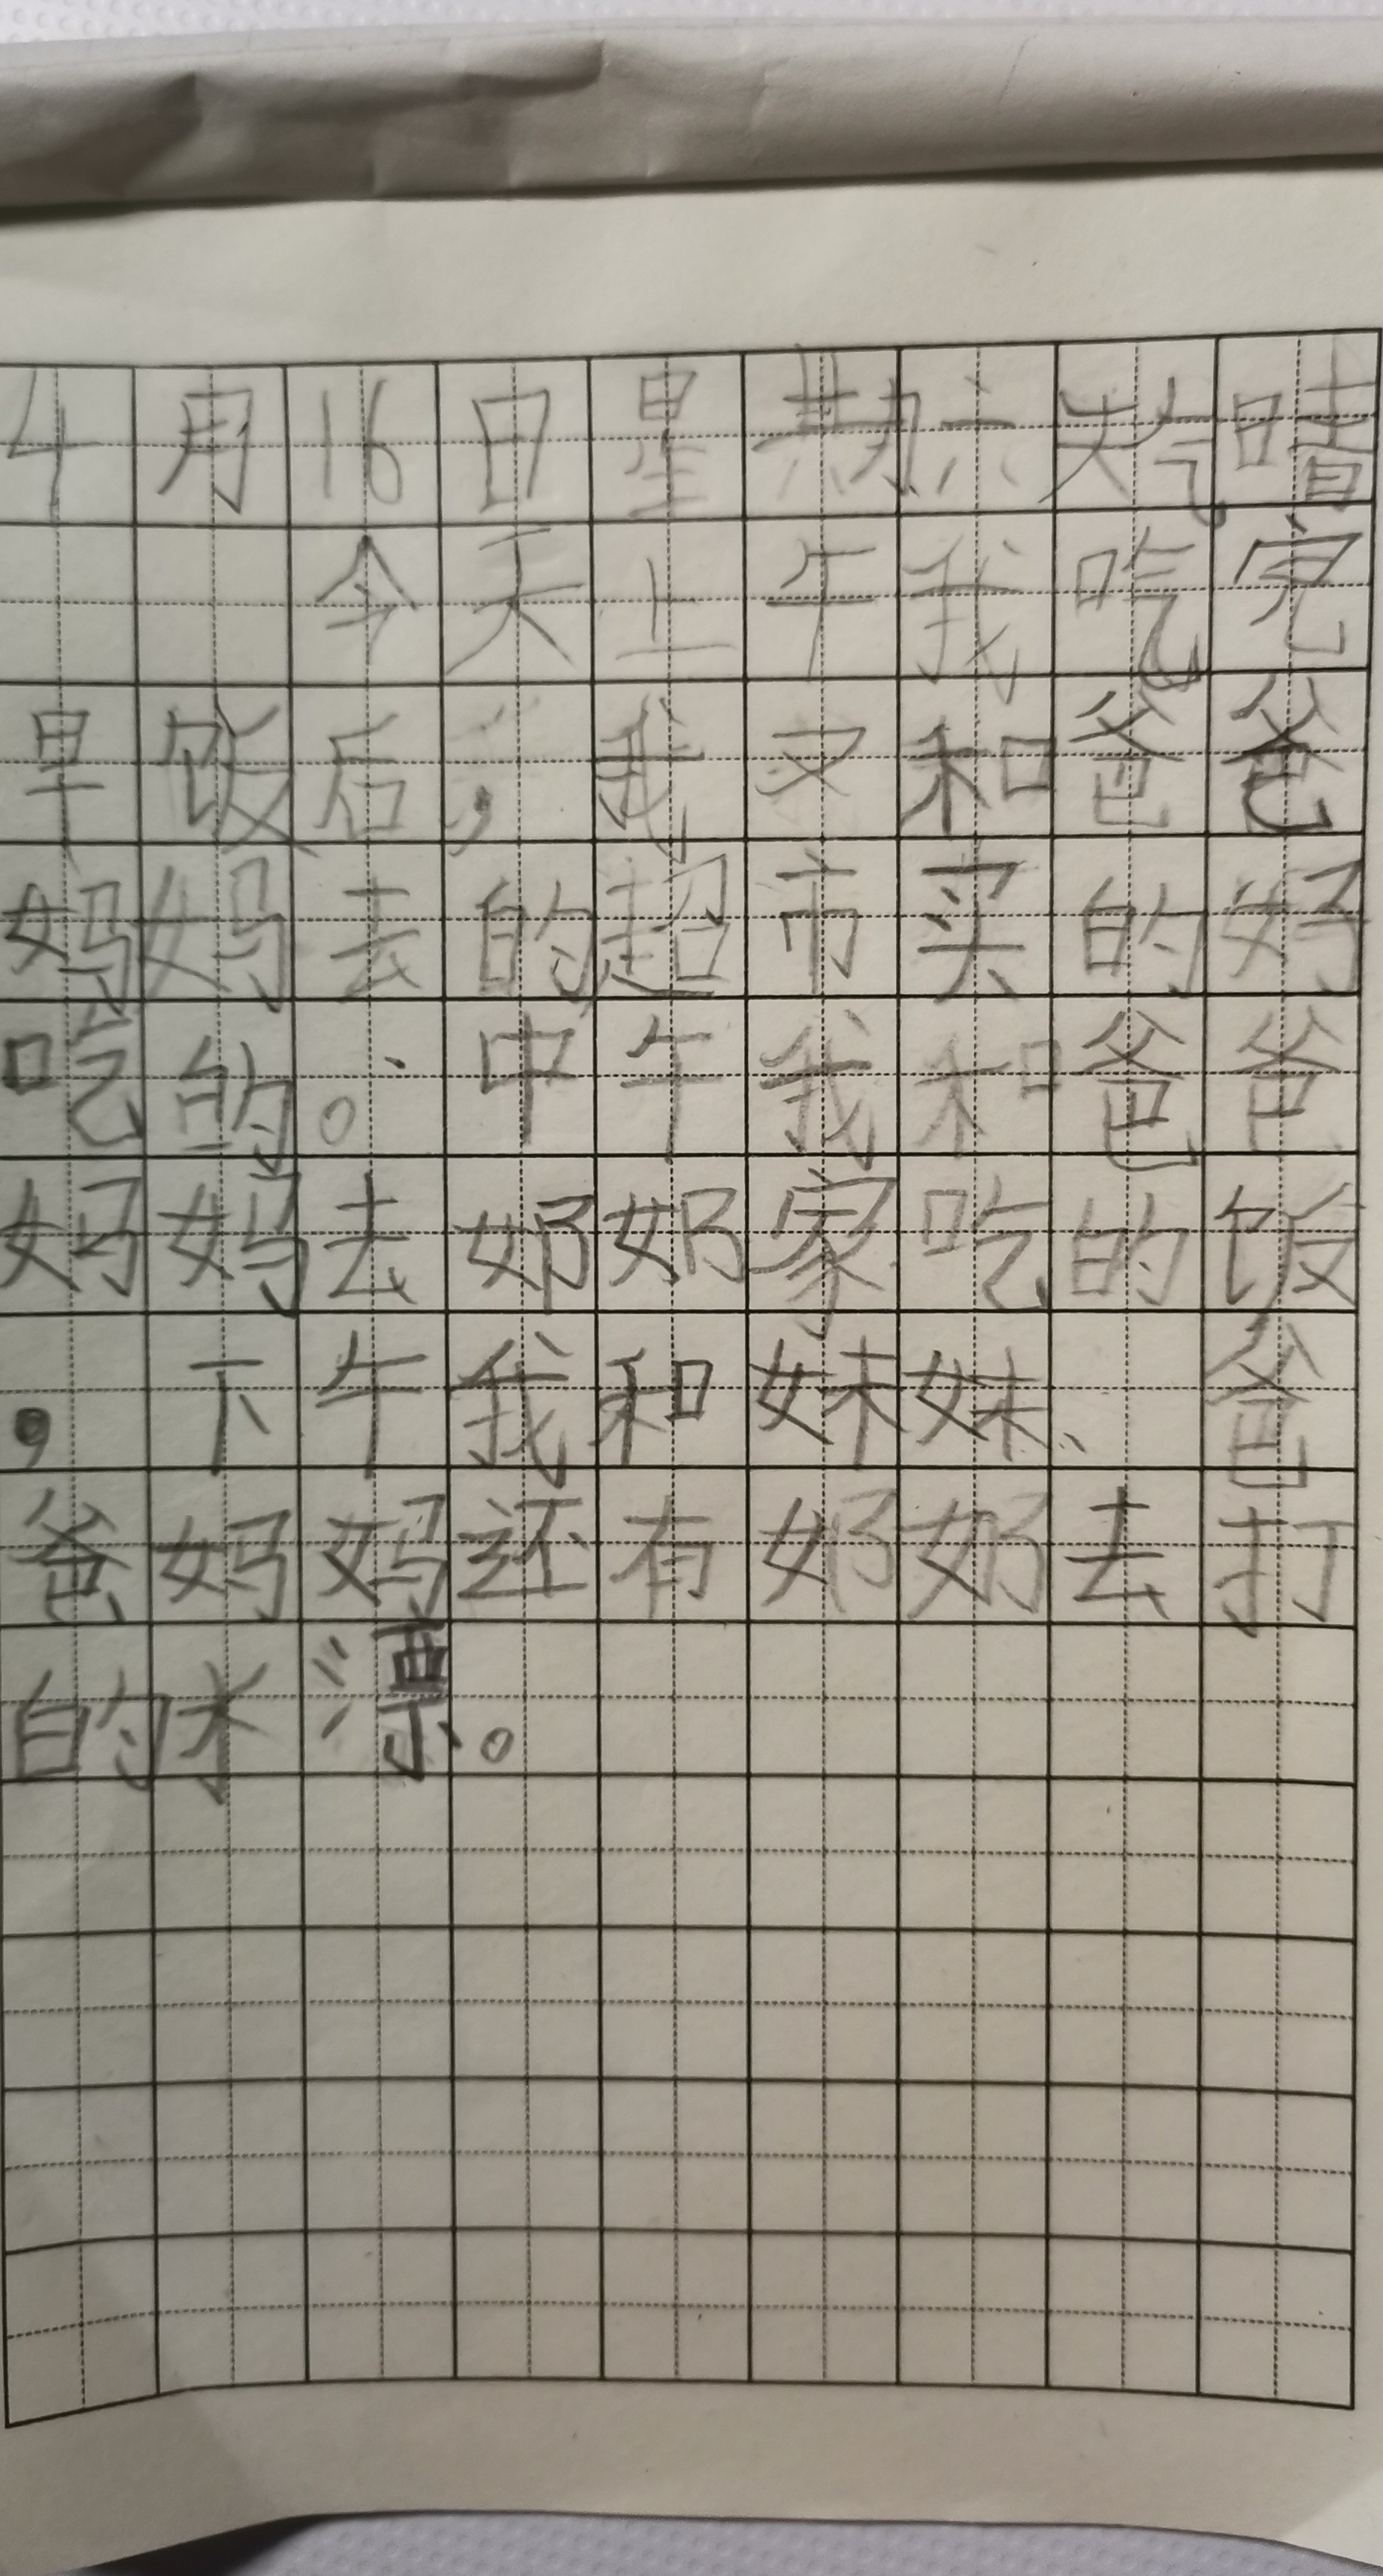 4月16日星期六天气晴
今天上午我吃完
早饭后，我又和爸爸
妈妈去的超市买的好
吃的。中午我和爸爸
妈妈去奶奶家吃的饭
，下午我和妹妹、爸
爸妈妈还有奶奶去打
的水漂。